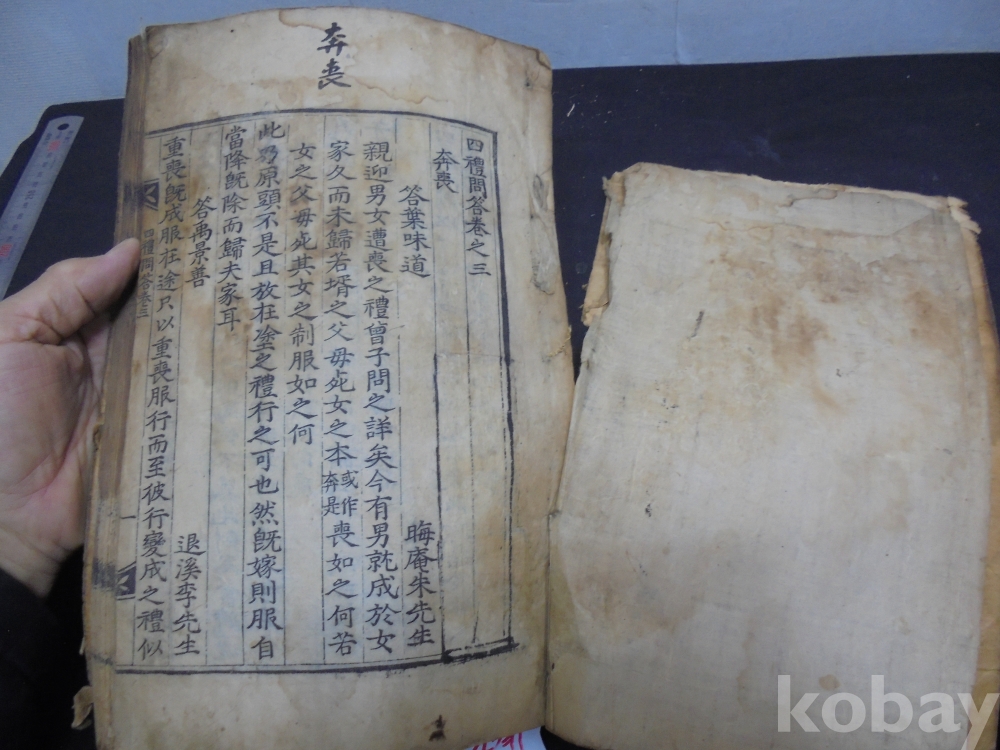 奔喪
四禮問答卷之三
奔喪
答葉味道 晦庵朱先生
親迎男女遭喪之禮曾子問之詳矣今有男就成於女
家久而未歸若壻之父母死女之本或作奔是喪如之何若
女之父母死其女之制服如之何
此乃原頭不是且放在塗之禮行之可也然旣嫁則服自
當降旣除而歸夫家耳
答禹景善 退溪李先生
重喪旣成服在途只以重喪服行而至彼行變成之禮似
四禮問答卷三
一
kobay